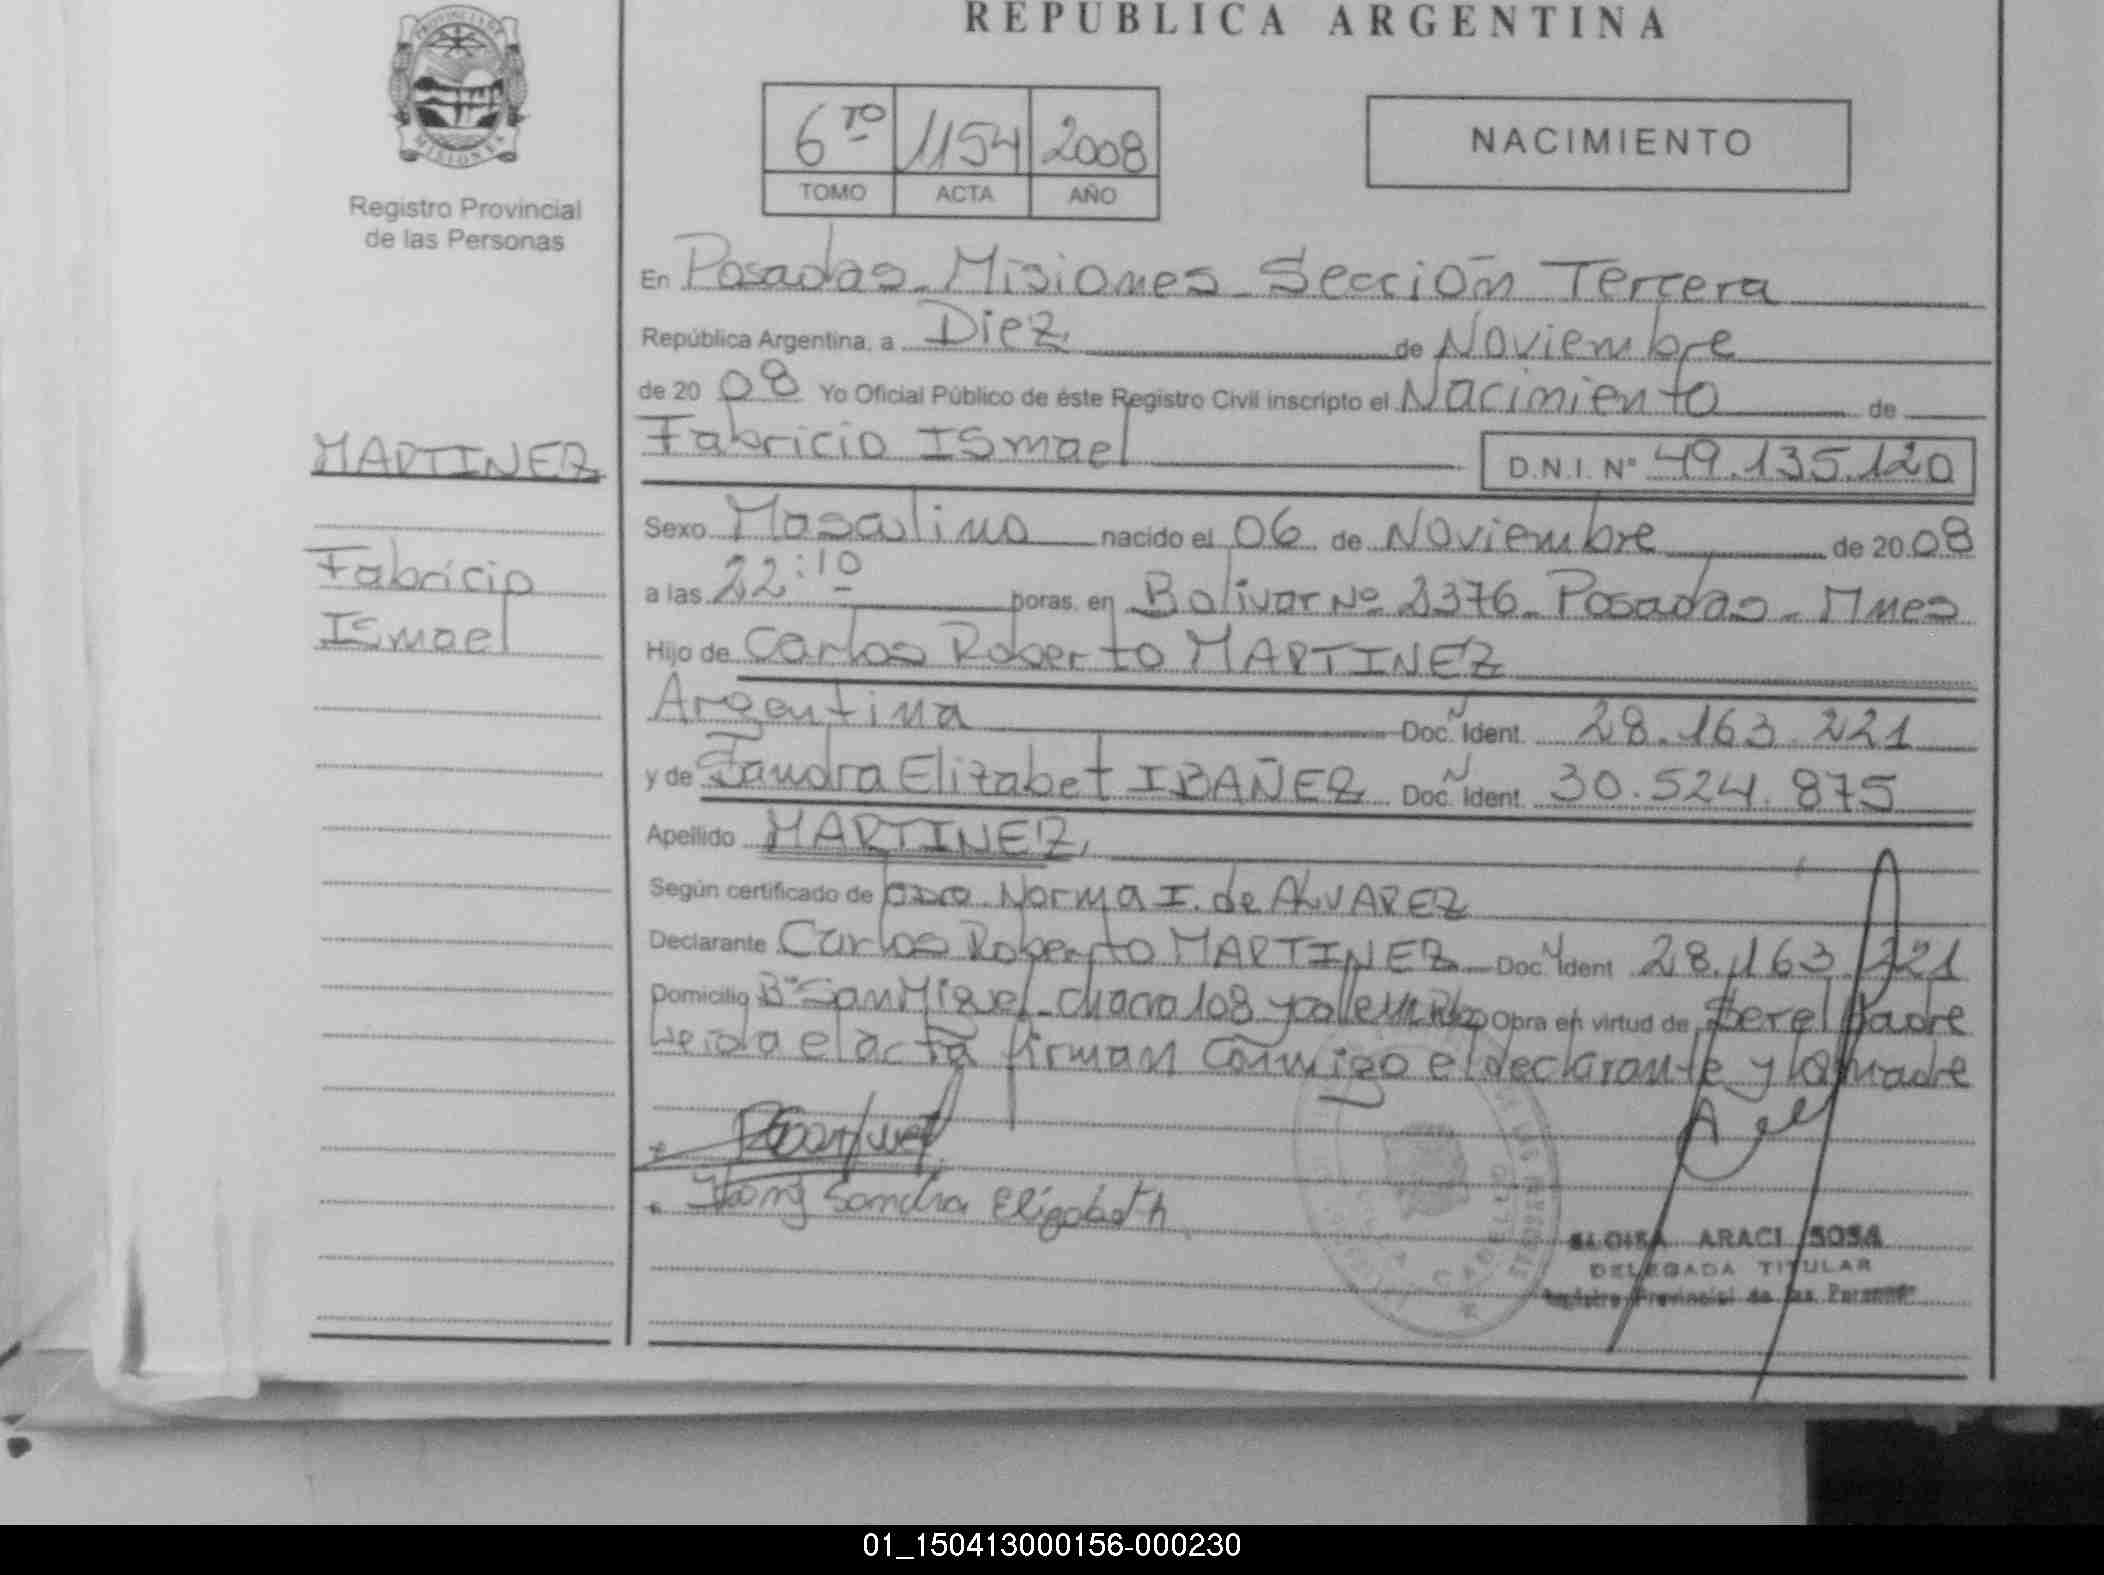 REPUBLICA ARGENTINA
PROVINCIA DE
MISIONES
Registro Provincial
de las Personas
6TO 1154 2008
TOMO ACTA AÑO
NACIMIENTO
En Posadas-Misiones-Sección Tercera
República Argentina, a Diez de Noviembre
de 2008 Yo Oficial Público de éste Registro Civil inscripto el Nacimiento de
Fabricio Ismael D.N.I. Nº 49.135.120
MARTINEZ
Fabricio
Ismael
Sexo Masculino nacido el 06 de Noviembre de 2008
a las 22:10 horas, en Bolivar Nº 2376-Posadas-Mnes
Hijo de Carlos Roberto MARTINEZ
Argentina Doc. Ident. 28.163.221
y de Sandra Elizabet IBAÑEZ Doc. Ident. 30.524.875
Apellido MARTINEZ
Según certificado de Norma I. de ALVAREZ
Declarante Carlos Roberto MARTINEZ Doc. Ident 28.163.221
Domicilio Bº San Miguel-chacra 108 Obra en virtud de Ser el Padre
Leida el acta firman conmigo el declarante y la madre
Sandra Elizabeth
ELOISA ARACI SOSA
DELEGADA TITULAR
Registro Provincial de las Personas
01_150413000156-000230